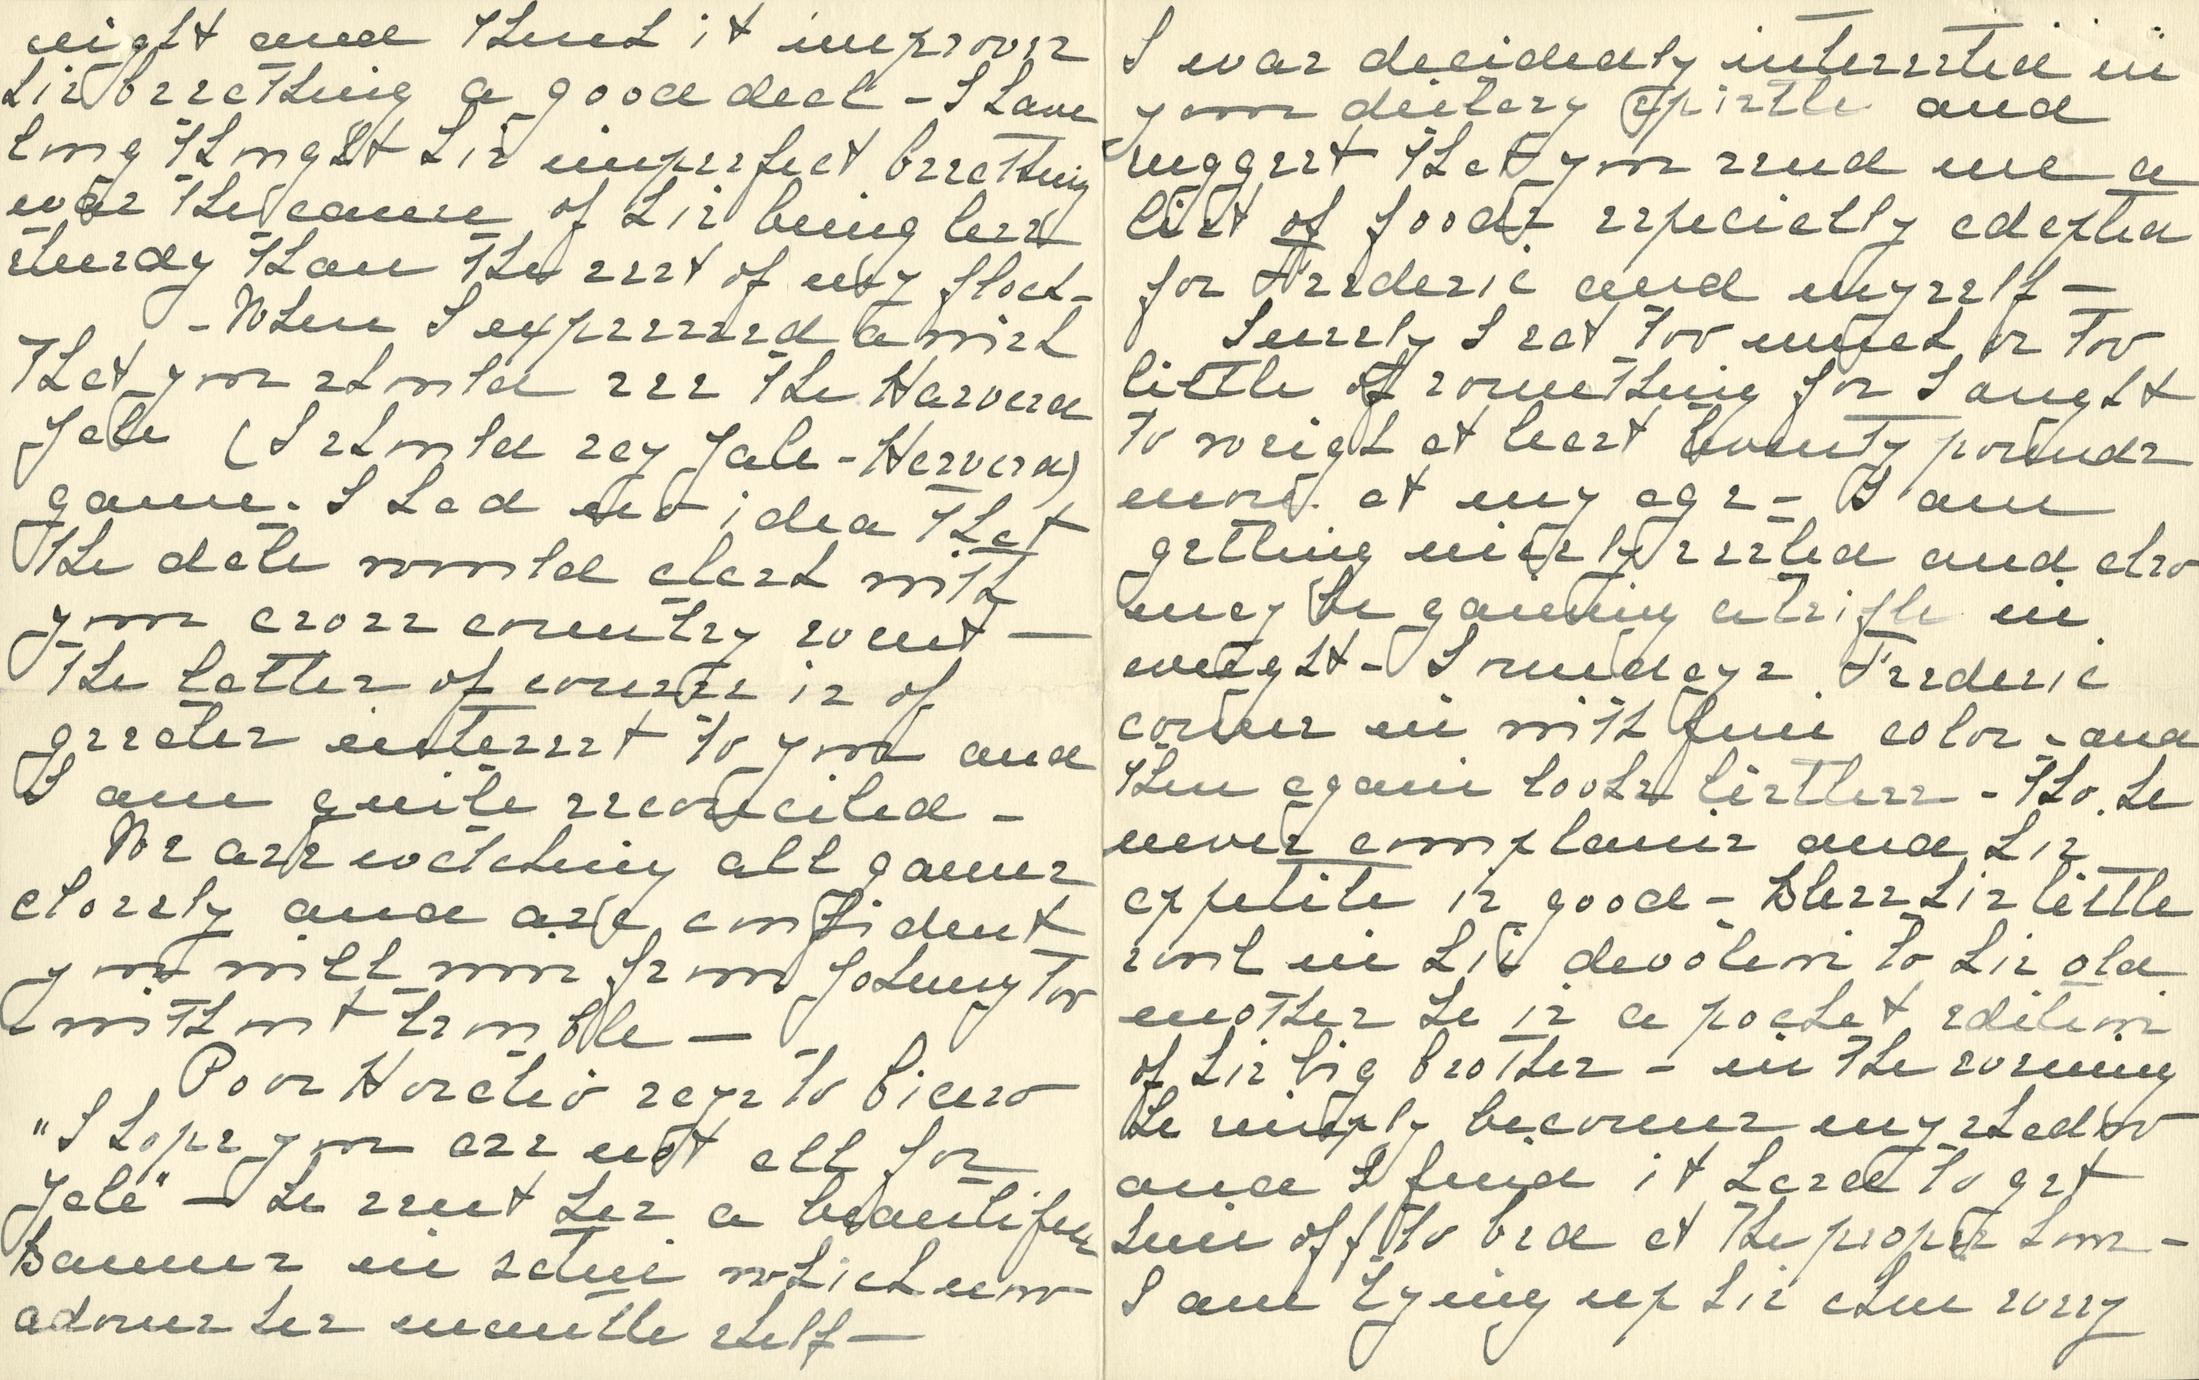 night and think it improves
his breathing a good deal - I have
long thought his imperfect breathing
was the cause of his being less
sturdy than the rest of my flock -
- When I expressed a wish
that you should see the Harvard
Yale (I should say Yale - Harvard)
game. I had no idea that
the date would clash with
your cross country event —
The latter of course is of
greater interest to you and
I am quite reconciled -
We are watching all games
closely and are confident
you will win from Johnny too
without trouble —
Poor Horatio says to Cicero
"I hope you are not all for
Yale" — he sent her a beautiful
banner in satin which now
adorns her mantle shelf —
I was decidedly interested in
your dietary epistle and
suggest that you send me a
list of foods especially adapted
for Frederic and myself —
Surely I eat too much or too
little of something for I ought
to weigh at least twenty pounds
more at my age - I am
getting nicely settled and also
may be gaining a trifle in
weight - Sundays Frederic
comes in with fine color - and
then again looks listless - Tho he
never complains and his
appetite is good - Bless his little
soul in his devotion to his old
mother he is a pocket edition
of his big brother - in the evening
he simply becomes my shadow
and I find it hard to get
him off to bed at the proper hour -
I am tying up his chin every